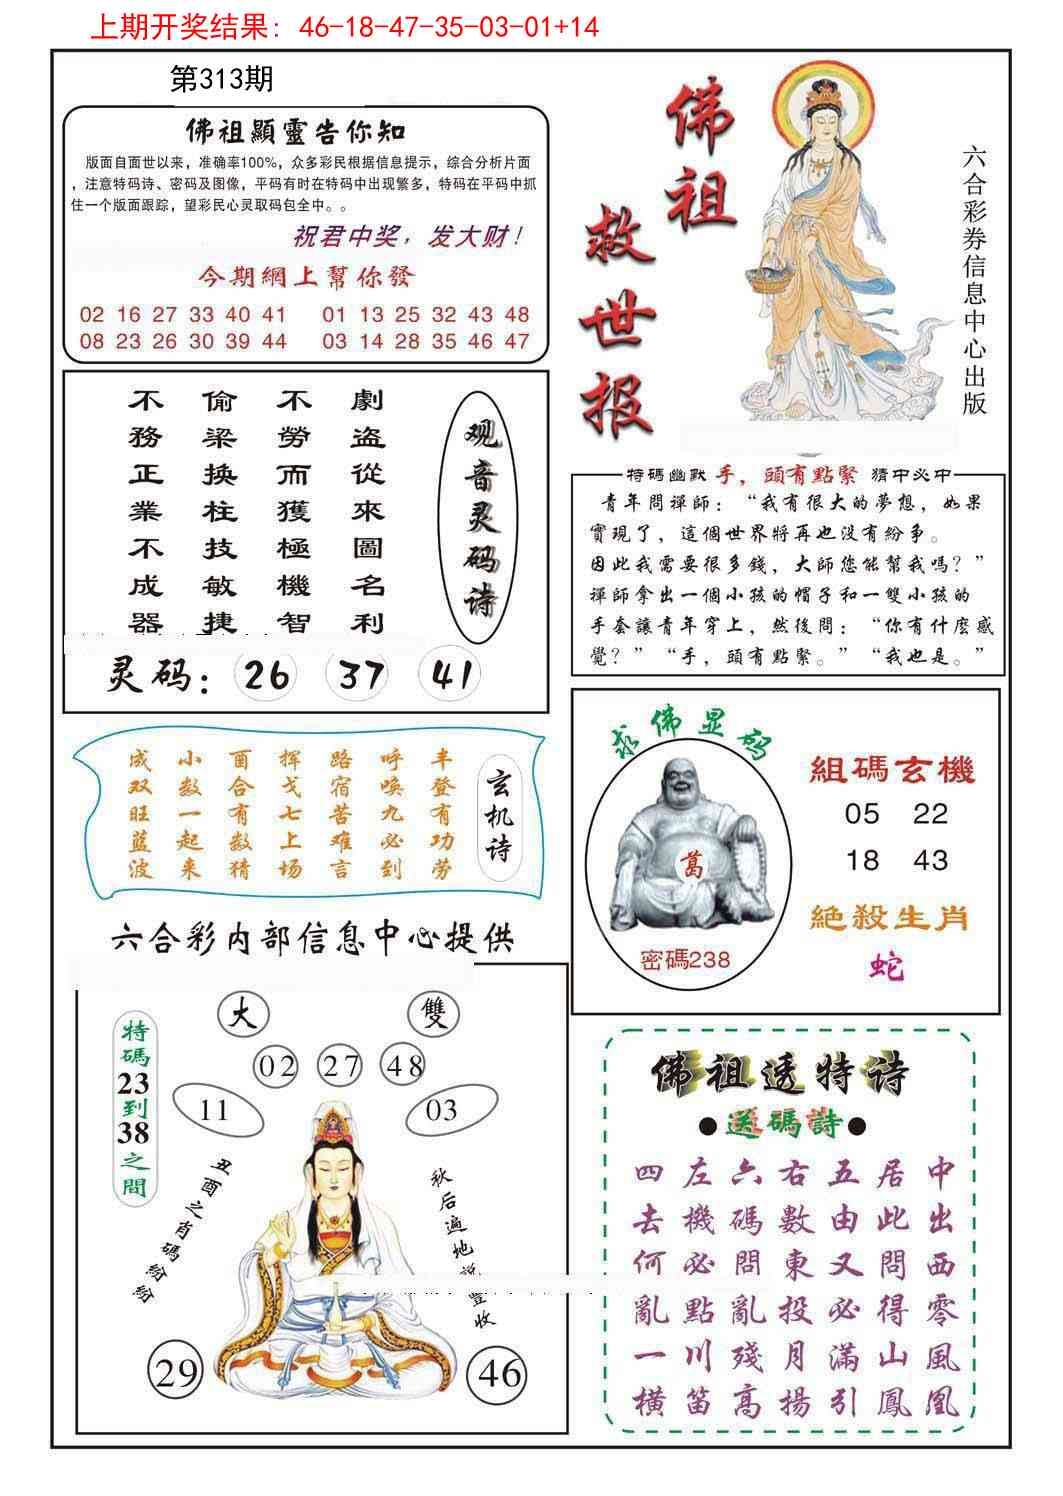 上期开奖结果: 46-18-47-35-03-01+14
第313期
佛祖顯靈告你知
版面自面世以来，准确率100%，众多彩民根据信息提示，综合分析片面
，注意特码诗、密码及图像，平码有时在特码中出现繁多，特码在平码中抓
住一个版面跟踪，望彩民心灵取码包全中。。
祝君中奖，发大财!
今期網上幫你發
02 16 27 33 40 41 01 13 25 32 43 48
08 23 26 30 39 44 03 14 28 35 46 47
佛祖
救世报
六合彩券信息中心出版
劇盗從來圖名利
不勞而獲極機智
偷梁换柱技敏捷
不務正業不成器
观音灵码诗
灵码: 26 37 41
特碼幽默 手，頭有點緊 猜中必中
青年問禪師：“我有很大的夢想，如果
實現了，這個世界將再也没有紛爭。
因此我需要很多錢，大師您能幫我嗎？”
禪師拿出一個小孩的帽子和一雙小孩的
手套讓青年穿上，然後問：“你有什麼感
覺？”“手，頭有點緊。”“我也是。”
玄机诗
丰登有功劳
呼唤九必到
路宿苦难言
挥戈七上场
酉合有数猜
小数一起来
成双旺蓝波
求佛显码
萬
密碼238
組碼玄機
05 22
18 43
絕殺生肖
蛇
六合彩内部信息中心提供
特碼23到38之間
大
雙
02 27 48
11
03
丑酉之肖碼紛紛
秋后遍地 豐收
29
46
佛祖透特诗
●送碼詩●
中出西零風凰
居此問得山鳳
五由又必滿引
右數東投月揚
六碼問亂殘高
左機必點川笛
四去何亂一横